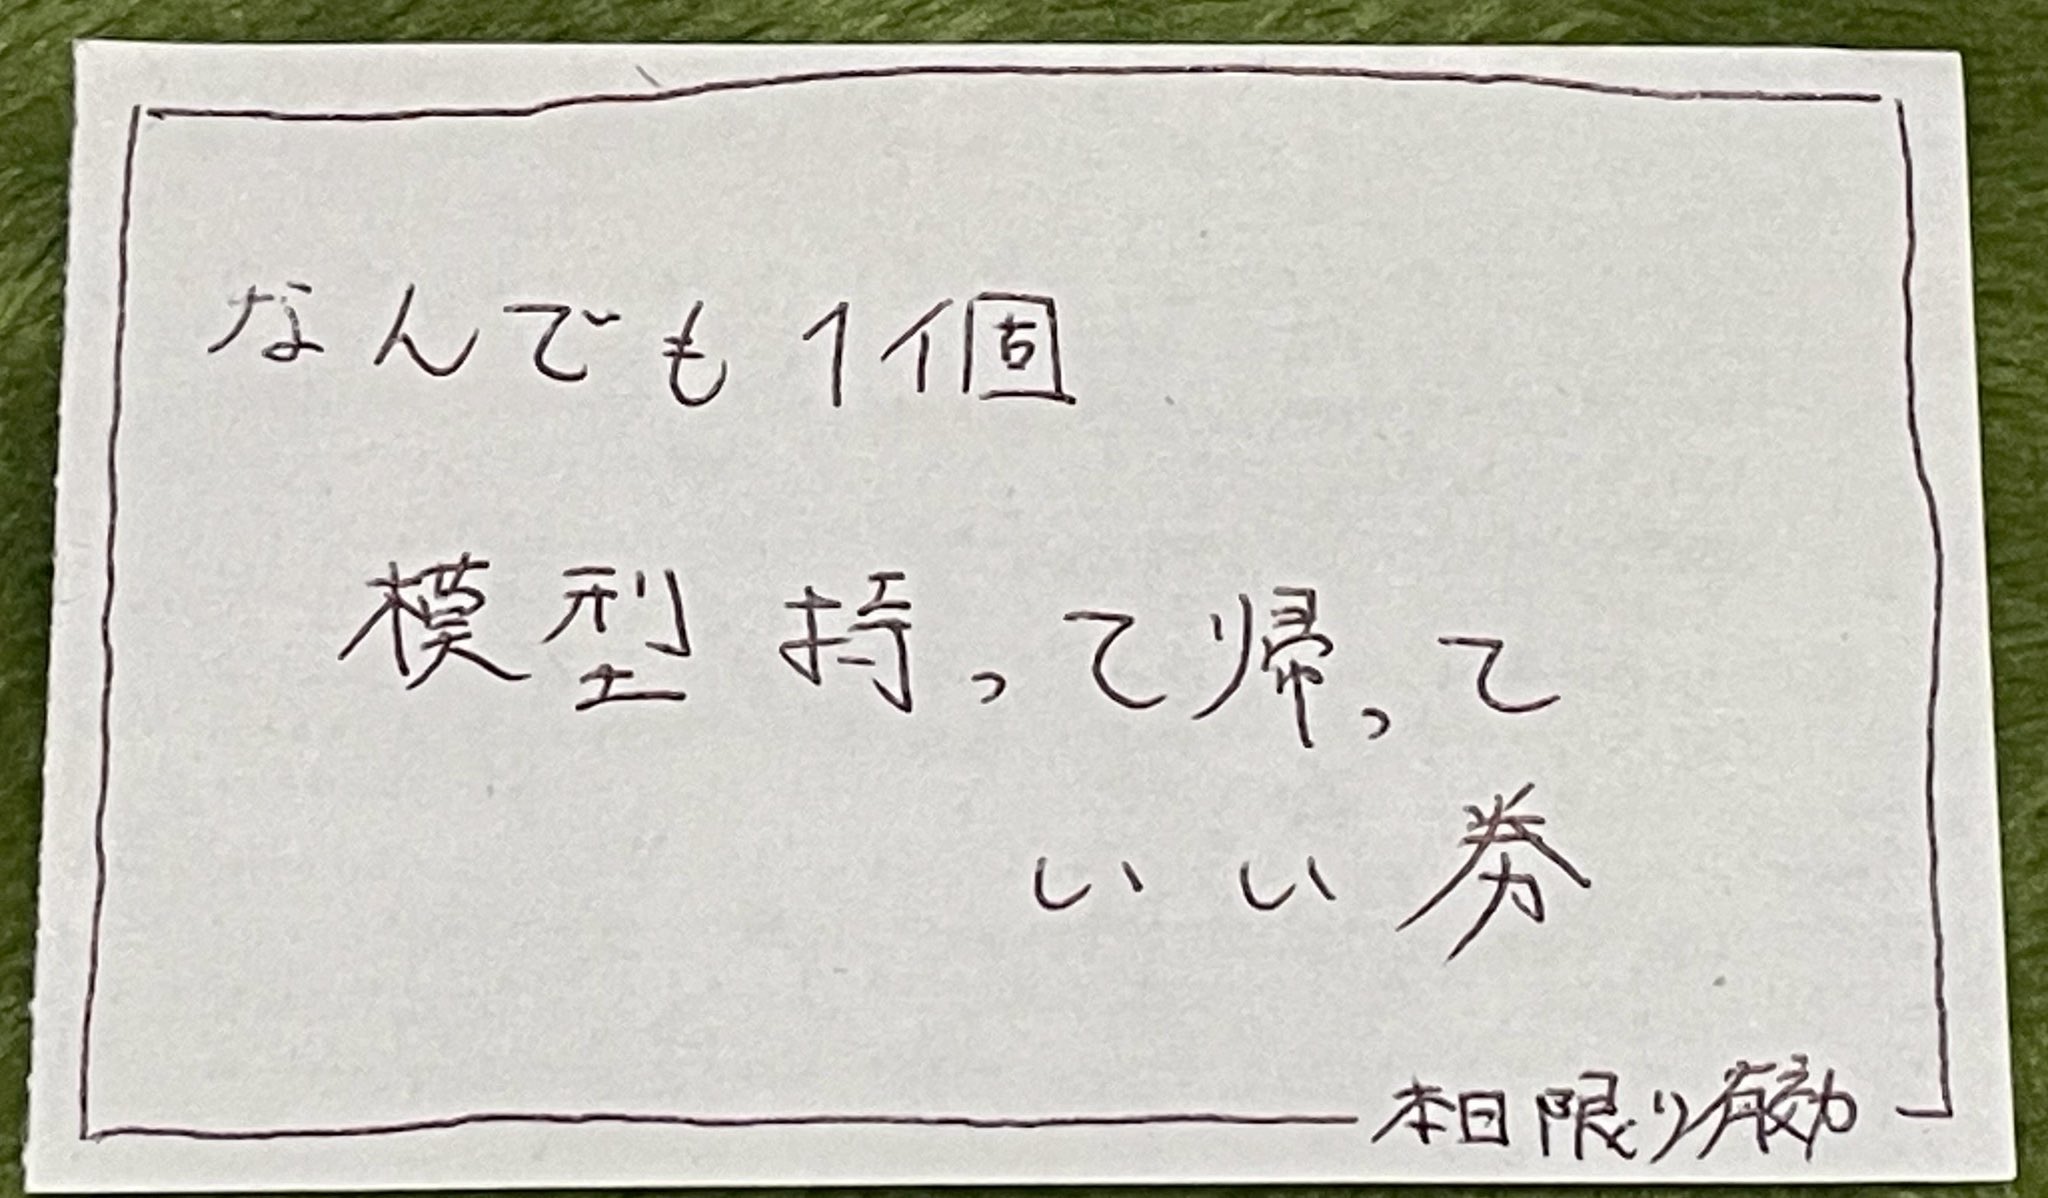 なんでも1個
模型持って帰って
いい券
本日限り有効